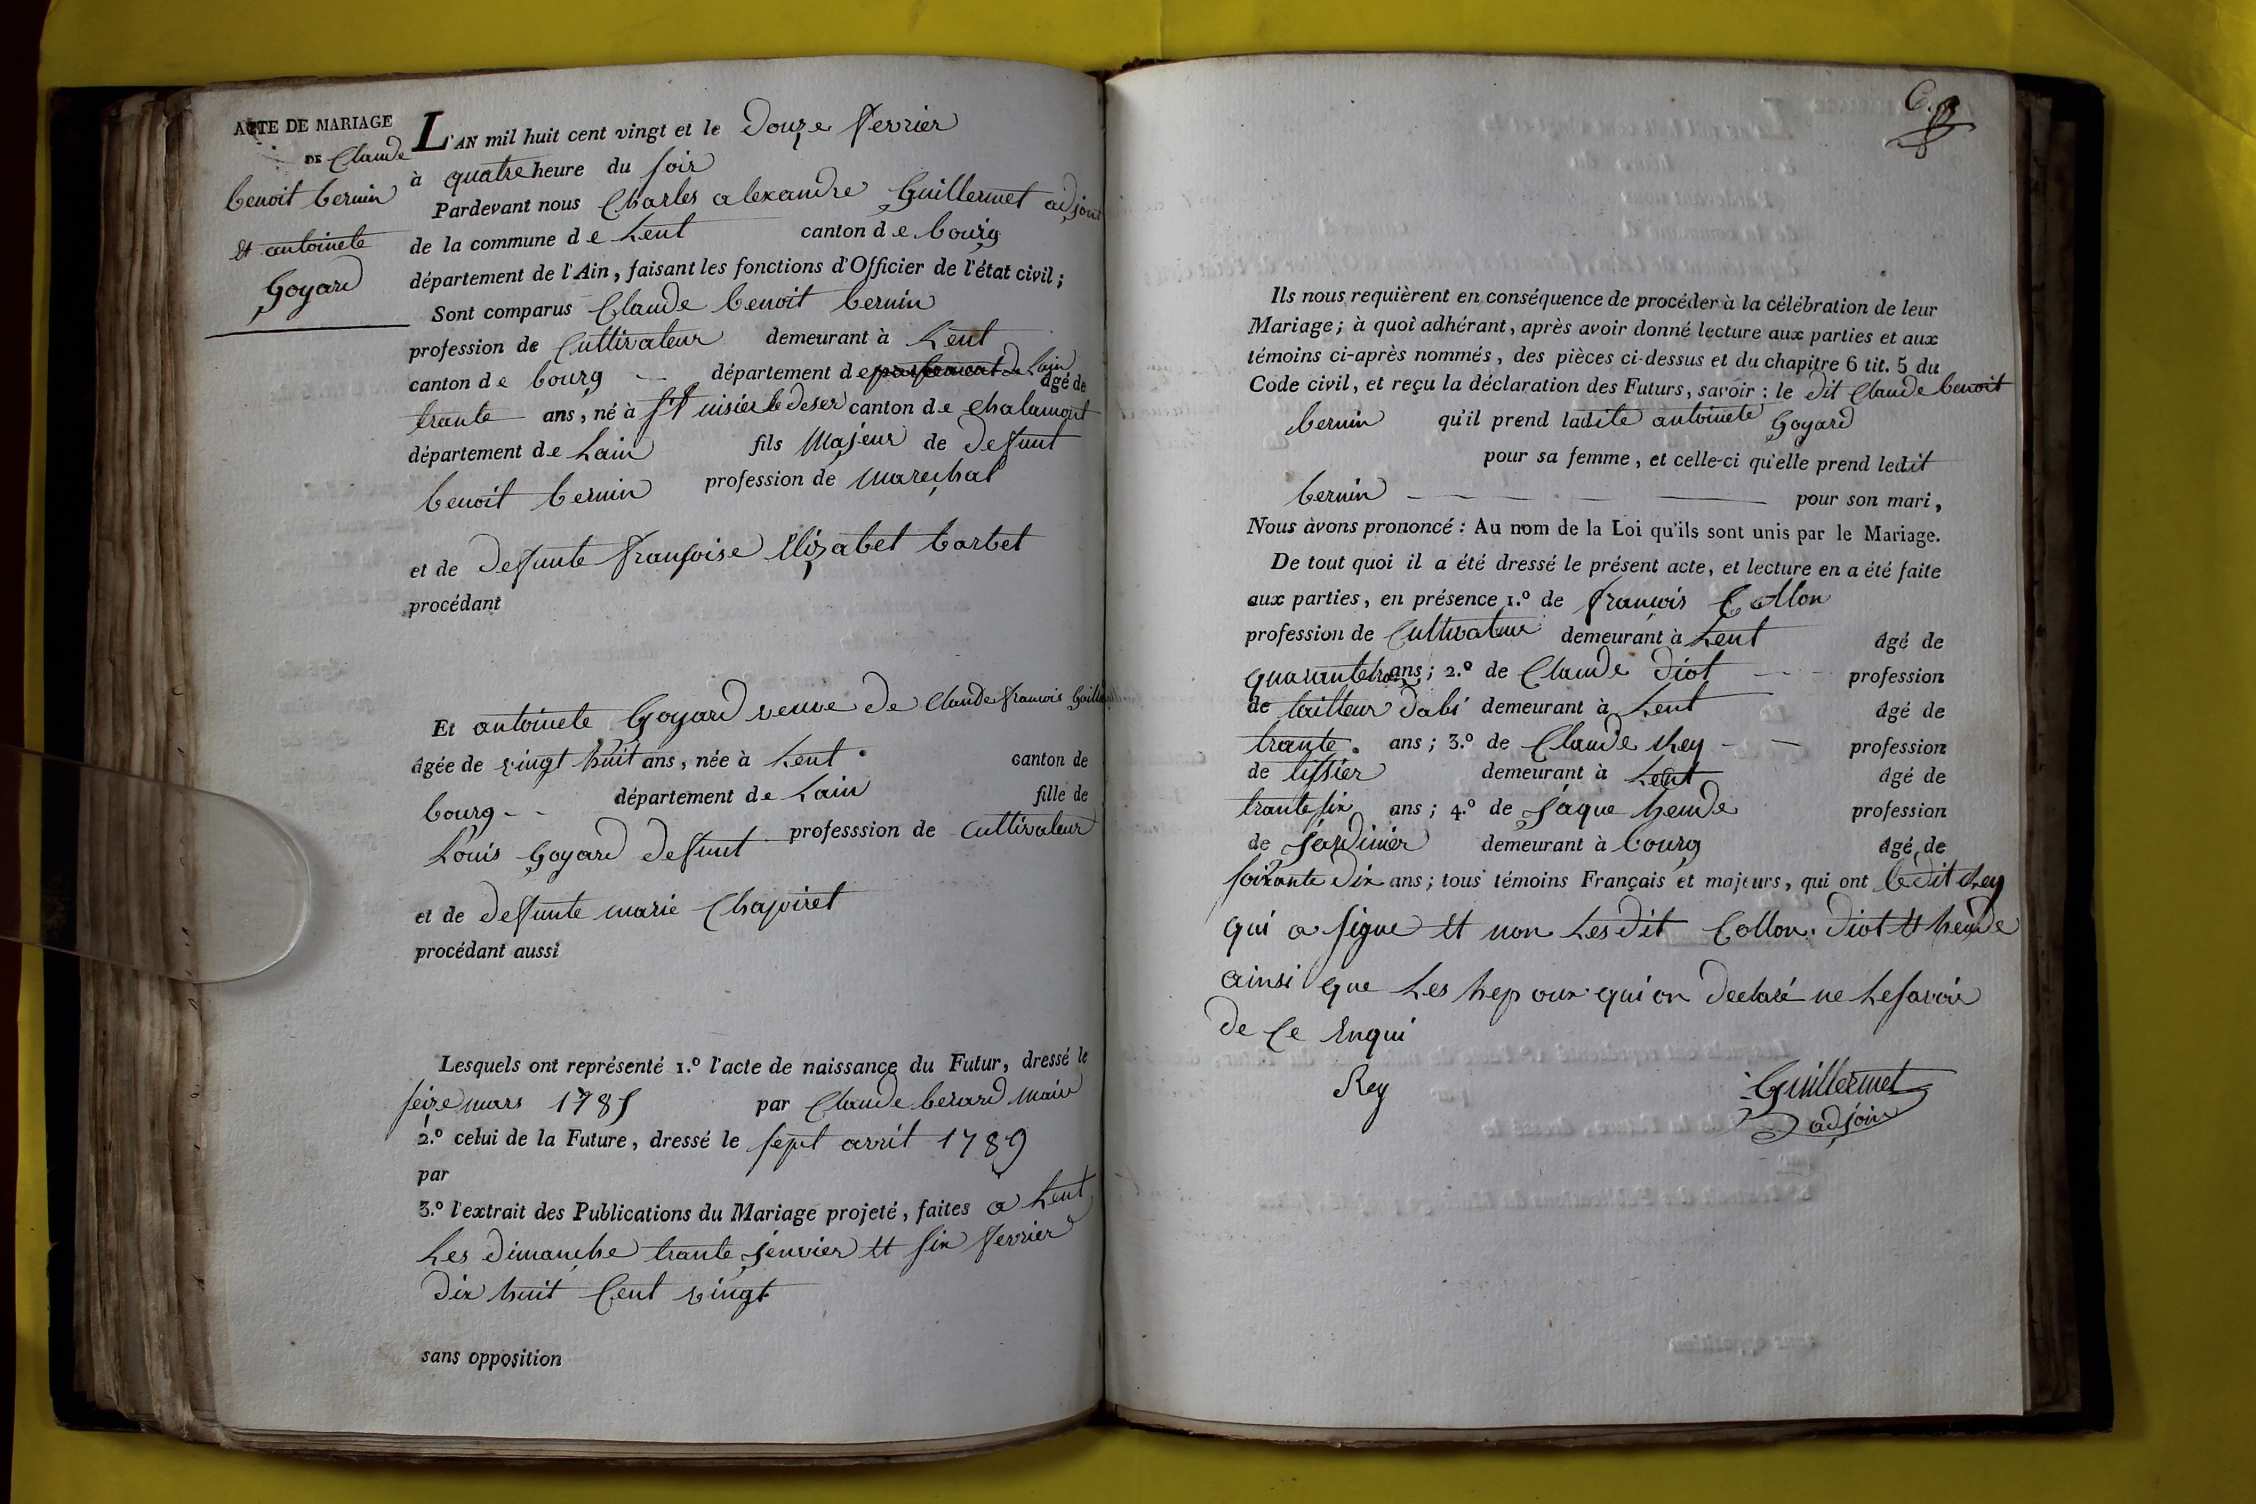 ACTE DE MARIAGE
DE Claude
benoit bernin
et antoinete
Goyard
L'AN mil huit cent vingt et le douze fevrier
à quatre heure du soir
Pardevant nous Charles alexandre Guillermet adjoint
de la commune de Lent canton de bourg
département de l'Ain, faisant les fonctions d'Officier de l'état civil;
Sont comparus Claude benoit bernin
profession de Cultivateur demeurant à Lent
canton de bourg département de Lain âgé de
trante ans, né à st nisier le deser canton de chalamont
département de Lain fils Majeur de defunt
benoit bernin profession de marechal
et de defunte françoise Elizabet barbet
procédant
Et antoinete Goyard veuve de Claude francois
âgée de vingt huit ans, née à Lent canton de
bourg département de Lain fille de
Louis Goyard defunt professsion de Cultivateur
et de defunte marie Chapiret
procédant aussi
Lesquels ont représenté 1.º l'acte de naissance du Futur, dressé le
seize mars 1785 par Claude berard maire
2.º celui de la Future, dressé le sept avril 1789
par
3.º l'extrait des Publications du Mariage projeté, faites a Lent
Les dimanche trante jenvier et six fevrier
dix huit Cent vingt
sans opposition
Ils nous requièrent en conséquence de procéder à la célébration de leur
Mariage; à quoi adhérant, après avoir donné lecture aux parties et aux
témoins ci-après nommés, des pièces ci-dessus et du chapitre 6 tit. 5 du
Code civil, et reçu la déclaration des Futurs, savoir: le dit Claude benoit
bernin qu'il prend ladite antoinete Goyard
pour sa femme, et celle-ci qu'elle prend ledit
bernin pour son mari,
Nous avons prononcé: Au nom de la Loi qu'ils sont unis par le Mariage.
De tout quoi il a été dressé le présent acte, et lecture en a été faite
aux parties, en présence 1.º de francois Collon
profession de Cultivateur demeurant à Lent âgé de
quarante ans; 2.º de Claude diot profession
de tailleur dabi demeurant à Lent âgé de
trante ans; 3.º de Claude Rey profession
de tissier demeurant à Lent âgé de
trante six ans; 4.º de jaque heude profession
de jardinier demeurant à bourg âgé de
soixante dix ans; tous témoins Français et majeurs, qui ont le dit Rey
qui a signe et non Les dit Collon diot et heude
ainsi que Les hepoux qui on declaré ne Le savoir
de Ce Enqui
Rey
Guillermet
adjoin